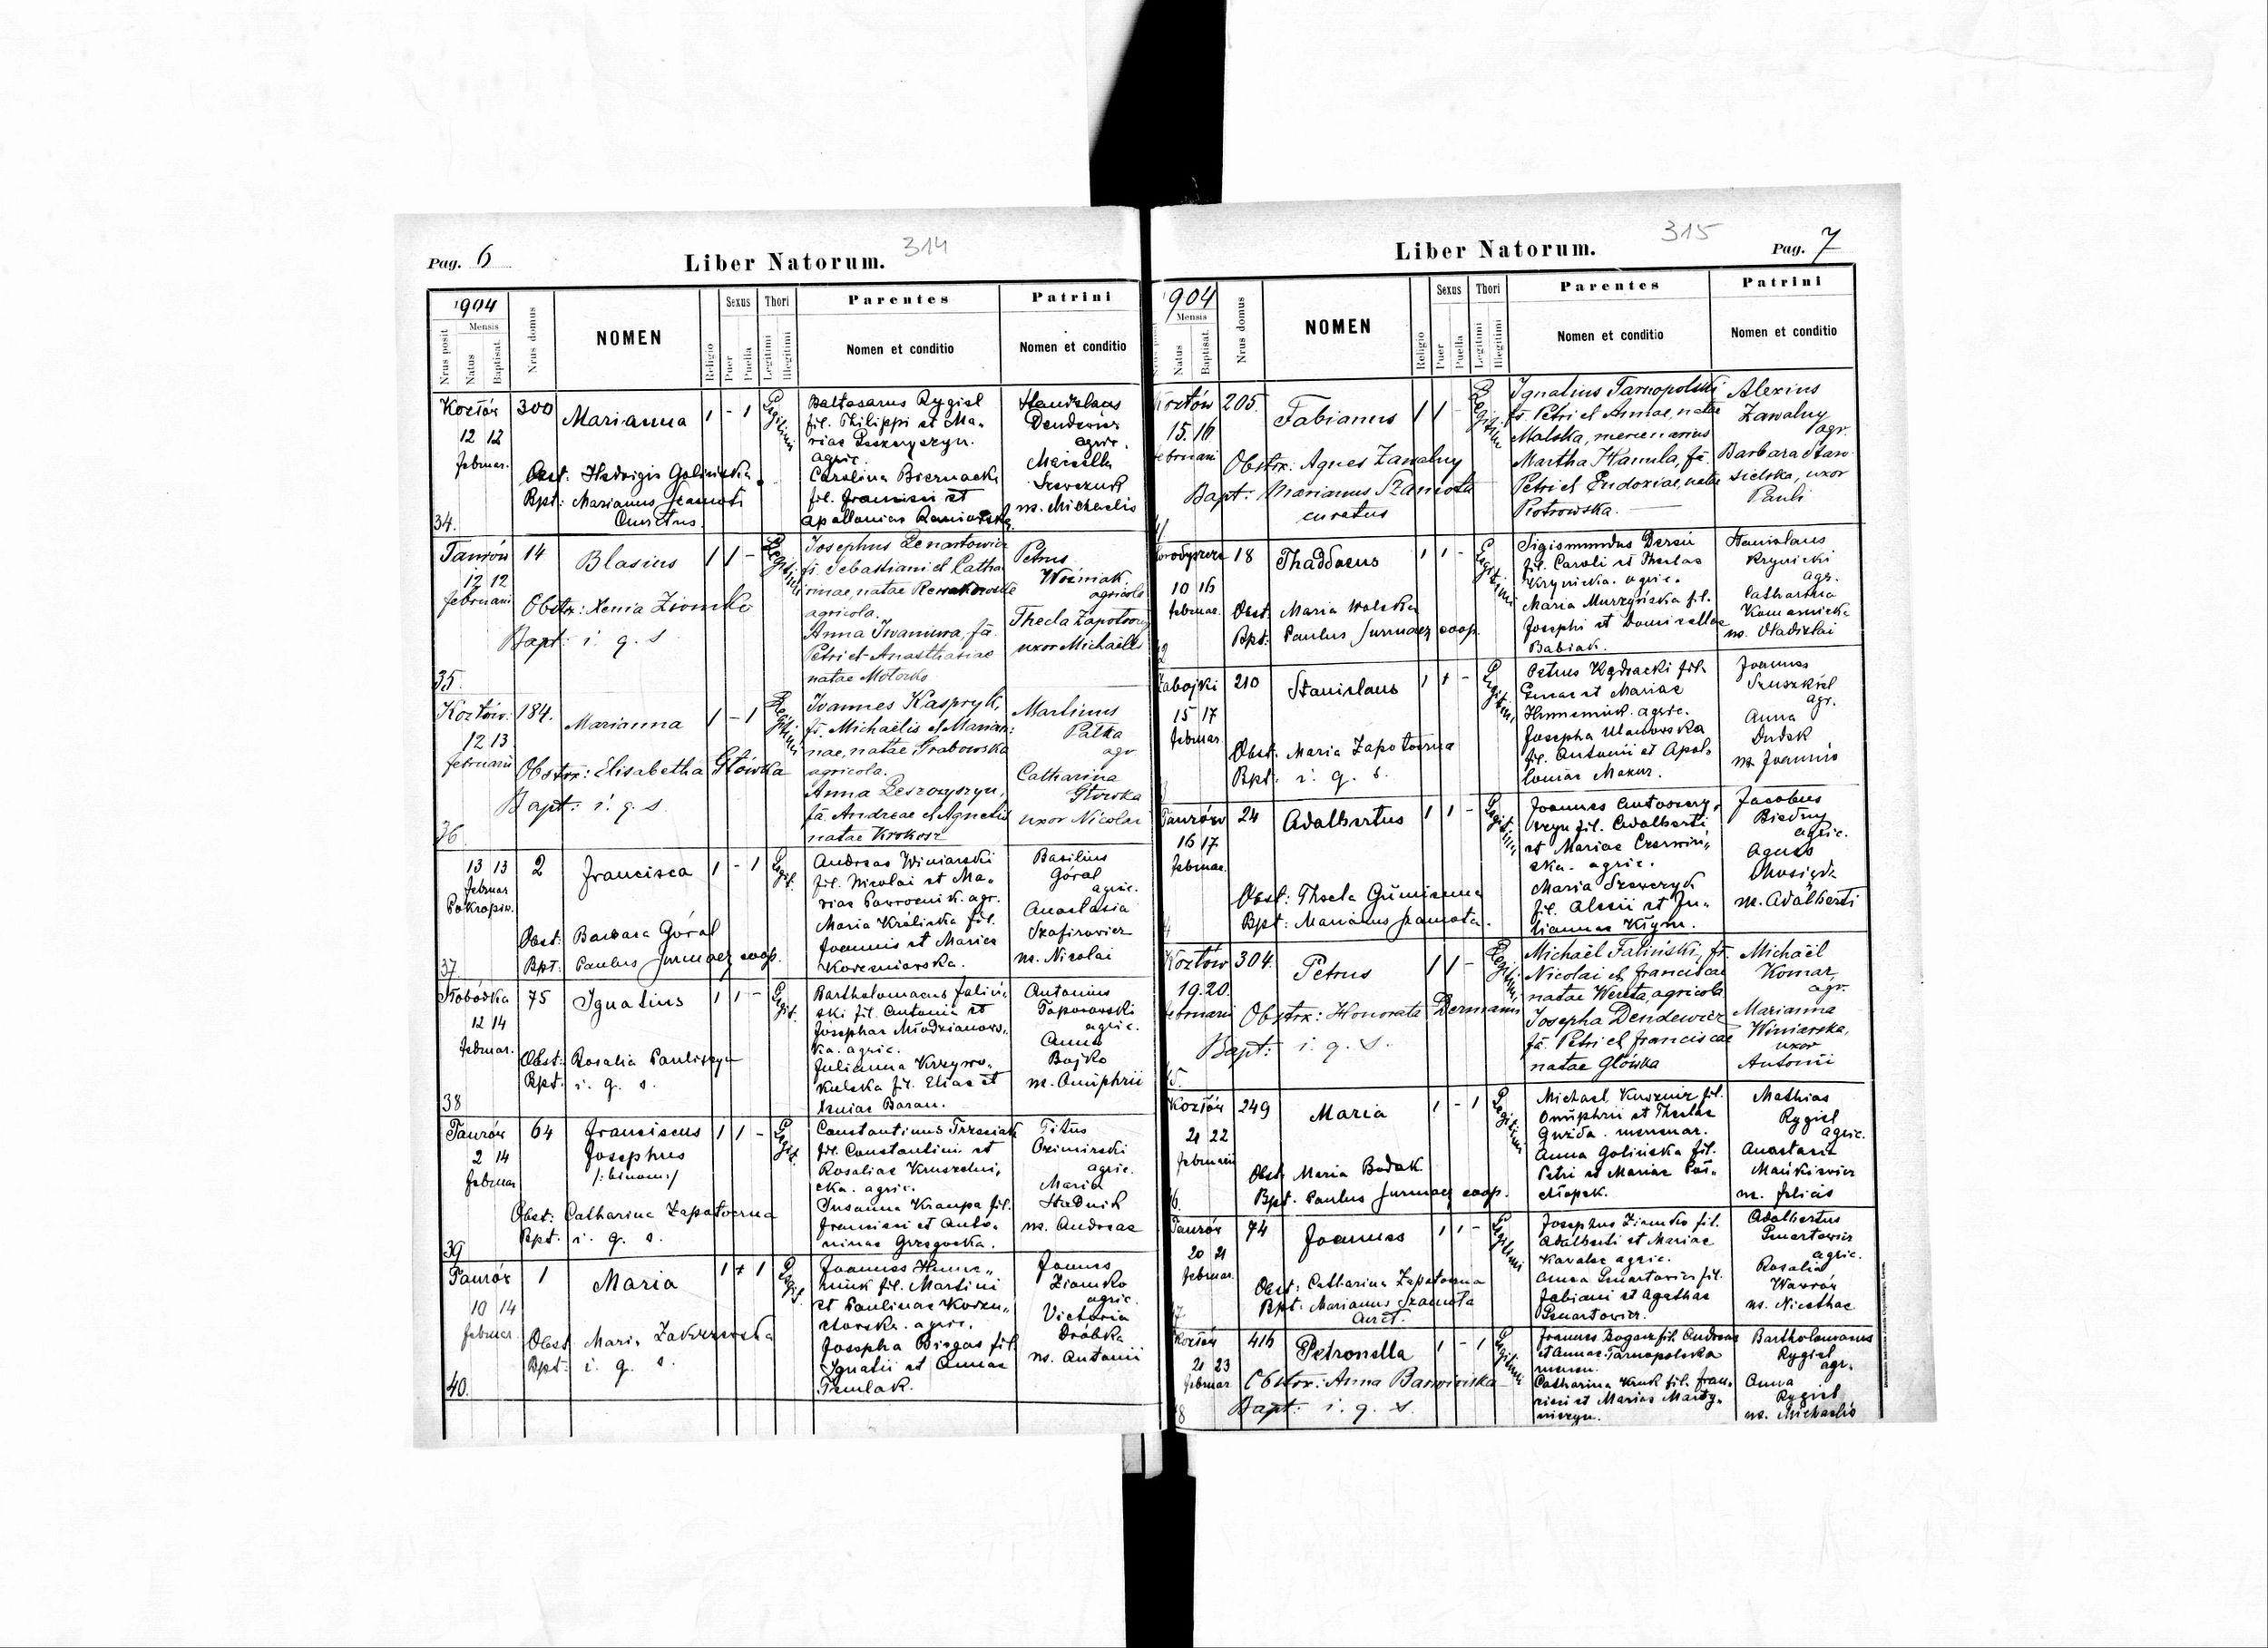 314
Pag. 6
Liber Natorum.
1904
Mensis
Nrus posit
Natus
Baptisat.
Nrus domus
NOMEN
Religio
Sexus
Puer
Puella
Thori
Legitimi
Illegitimi
Parentes
Nomen et conditio
Patrini
Nomen et conditio
Kozłów 300 Marianna 1 - 1 Legitimi
12 12
februar.
Obst: Hedvigis Golinska
Bpt: Marianus Szamota
34.
Baltasarus Rygiel
fil. Philippi et Ma-
riae Leszczyszyn.
agric.
Carolina Biernacka
fil. Francisci et
Apolloniae
Stanislaus
Dendewicz
agric.
Marcella
Szewczuk
ux. Michaelis
Taurów 14 Blasius 1 1 - Legitimi
12 12
februarii
Obstr: Xenia Ziomko
Bapt: i. q. s
35.
Josephus Lenartowicz
fs. Sebastiani et Catha
rinae, natae
agricola.
Anna Iwaniwa, fa.
Petri et Anasthasiae
natae Motorko
Petrus
Woźniak
agricola
Thecla Zapotoczna
uxor Michaëlis
Kozłów. 184. Marianna 1 - 1 Legitimi
12 13
februarii
Obstr: Elisabetha Główka
Bapt: i. q. s
36
Ioannes Kaspryk,
fs. Michaëlis et Marian:
nae, natae Grabowska
agricola.
Anna Leszczyszyn,
fa. Andreae et Agnetis
natae Krokosz
Martinus
Pałka
agr
Catharina
Główka
uxor Nicolai
13 13 2 Francisca 1 - 1 Legit.
februar
Pokropiw.
Obst: Barbara Góral
Bpt: Paulus Jurmacz coop.
37
Andreas Winiarski
fil. Nicolai et Ma-
riae Pawrocnik. agr.
Maria Królicka fil.
Joannis et Mariae
Korczniarska.
Basilius
Góral
agric.
Anastasia
Szafirowicz
ux. Nicolai
Słobódka 75 Ignatius 1 1 - Legit.
12 14
februar.
Obst: Rosalia Pauliszyn
Bpt. i. q. s.
38
Bartholomaeus Faliń-
ski fil. Antonii et
Josephae Młodzianows-
ka. agric.
Julianna Krzywo-
kulska fil. Eliae et
Xeniae Baran.
Antonius
Toporowski
agric.
Anna
Bojko
ux. Onuphrii
Taurów 64 Franciscus 1 1 - Legit.
2 14 Josephus
februar /:binom:/
Obst: Catharina Zapotoczna
Bpt. i. q. s.
39
Constantinus Trzeciak
fil. Constantini et
Rosaliae Kruszelni-
cka. agric.
Susanna Kraupa fil.
Francisci et Anto-
ninae Grzegocka.
Titus
Ozimirski
agric.
Maria
Stadnik
ux. Andreae
Taurów 1 Maria 1 - 1 Legit.
10 14
februar.
Obst. Maria Zakrzewska
Bpt: i. q. s.
40.
Joannes Hume-
niuk fil. Martini
et Paulinae
agric.
Josepha Biegas fil
Ignatii et Annae
Temlak.
Joannes
Ziomko
agric.
Victoria
Dróbka
ux. Antonii
315
Liber Natorum.
Pag. 7
1904
Mensis
Natus
Baptisat.
Nrus domus
NOMEN
Religio
Sexus
Puer
Puella
Thori
Legitimi
Illegitimi
Parentes
Nomen et conditio
Patrini
Nomen et conditio
Kozłów 205. Fabianus 1 1 - Legitim
15. 16
februarii
Obstr: Agnes Zawalny
Bapt: Marianus Szamota
curatus
Ignatius Tarnopolski
fs. Petri et Annae, natae
Malska, mercenarius
Martha Hamula, fa.
Petri et Eudoxiae, natae
Piotrowska.
Alexius
Zawalny
agr.
Barbara Staro
sielska, uxor
Pauli
18 Thaddaeus 1 1 - Legitimi
10 16
februar.
Obst. Maria Wolska
Bpt: Paulus Jurmacz coop.
Sigismundus Dereń
fil. Caroli et Theclae
Krynicka. agric.
Maria Murzyńska fil.
Josephi et Domicellae
Babiak.
Stanislaus
Krynicki
agr.
Catharina
Komarnicka
ux. Vladislai
Zabojki 210 Stanislaus 1 1 - Legitimi
15 17
februar.
Obst. Maria Zapotoczna
Bpt. i. q. s.
Petrus Kędracki fil.
et Mariae
Humeniuk. agric.
Josepha Ulanowska
fil. Antonii et Apol-
loniae Mazur.
Joannes
Szuszkiel
agr.
Anna
Dudek
ux Joannis
Taurów 24 Adalbertus 1 1 - Legitim
16 17
februar.
Obst: Thecla Gumienna
Bpt: Marianus Szamota.
Joannes Antoszczy-
szyn fil. Adalberti
et Mariae Czerwiń-
ska. agric.
Maria Szewczyk
fil. Alexii et Ju-
liannae Kłym.
Jacobus
Biedny
agric.
Agnes
Mosiądz
ux. Adalberti
Kozłów 304. Petrus 1 1 - Legitimi
19. 20.
februarii
Obstr: Honorata Dermanś
Bapt: i. q. s.
Michaël Faliński, fs.
Nicolai et Franciscae
natae Wereta, agricola
Josepha Dendewicz
fa. Petri et Franciscae
natae Główka
Michaël
Komar
agr.
Marianna
Winiarska,
uxor
Antonii
Kozłów 249 Maria 1 - 1 Legitimi
21 22
februarii
Obst. Maria Bodak
Bpt. Paulus Jurmacz coop.
Michael Kusznir fil.
Onuphrii et Theclae
Guzda. mercenar.
Anna Golińska fil.
Petri et Mariae Pół-
chłopek.
Mathias
Rygiel
agric.
Anastasia
Mańkiewicz
ux. Felicis
Taurów 74 Joannes 1 1 - Legitimi
20 21
februar.
Obst: Catharina Zapotoczna
Bpt. Marianus Szamota
Curat.
Josephus Ziomko fil.
Adalberti et Mariae
Kavalec agric.
Anna Lenartowicz fil.
Fabiani et Agathae
Lenartowicz.
Adalbertus
Lenartowicz
agric.
Rosalia
Wawrów
ux. Nicethae
Kozłów 416 Petronella 1 - 1 Legitimi
21 23
februar
Obstr: Anna Barwińska
Bapt: i. q. s.
Joannes Bogacz fil. Andreae
et Annae Tarnopolska
mercen.
Catharina Kruk fil. Fran-
cisci et Mariae Marty-
niszyn.
Bartholomaeus
Rygiel
agr.
Anna
Rygiel
ux. Michaelis